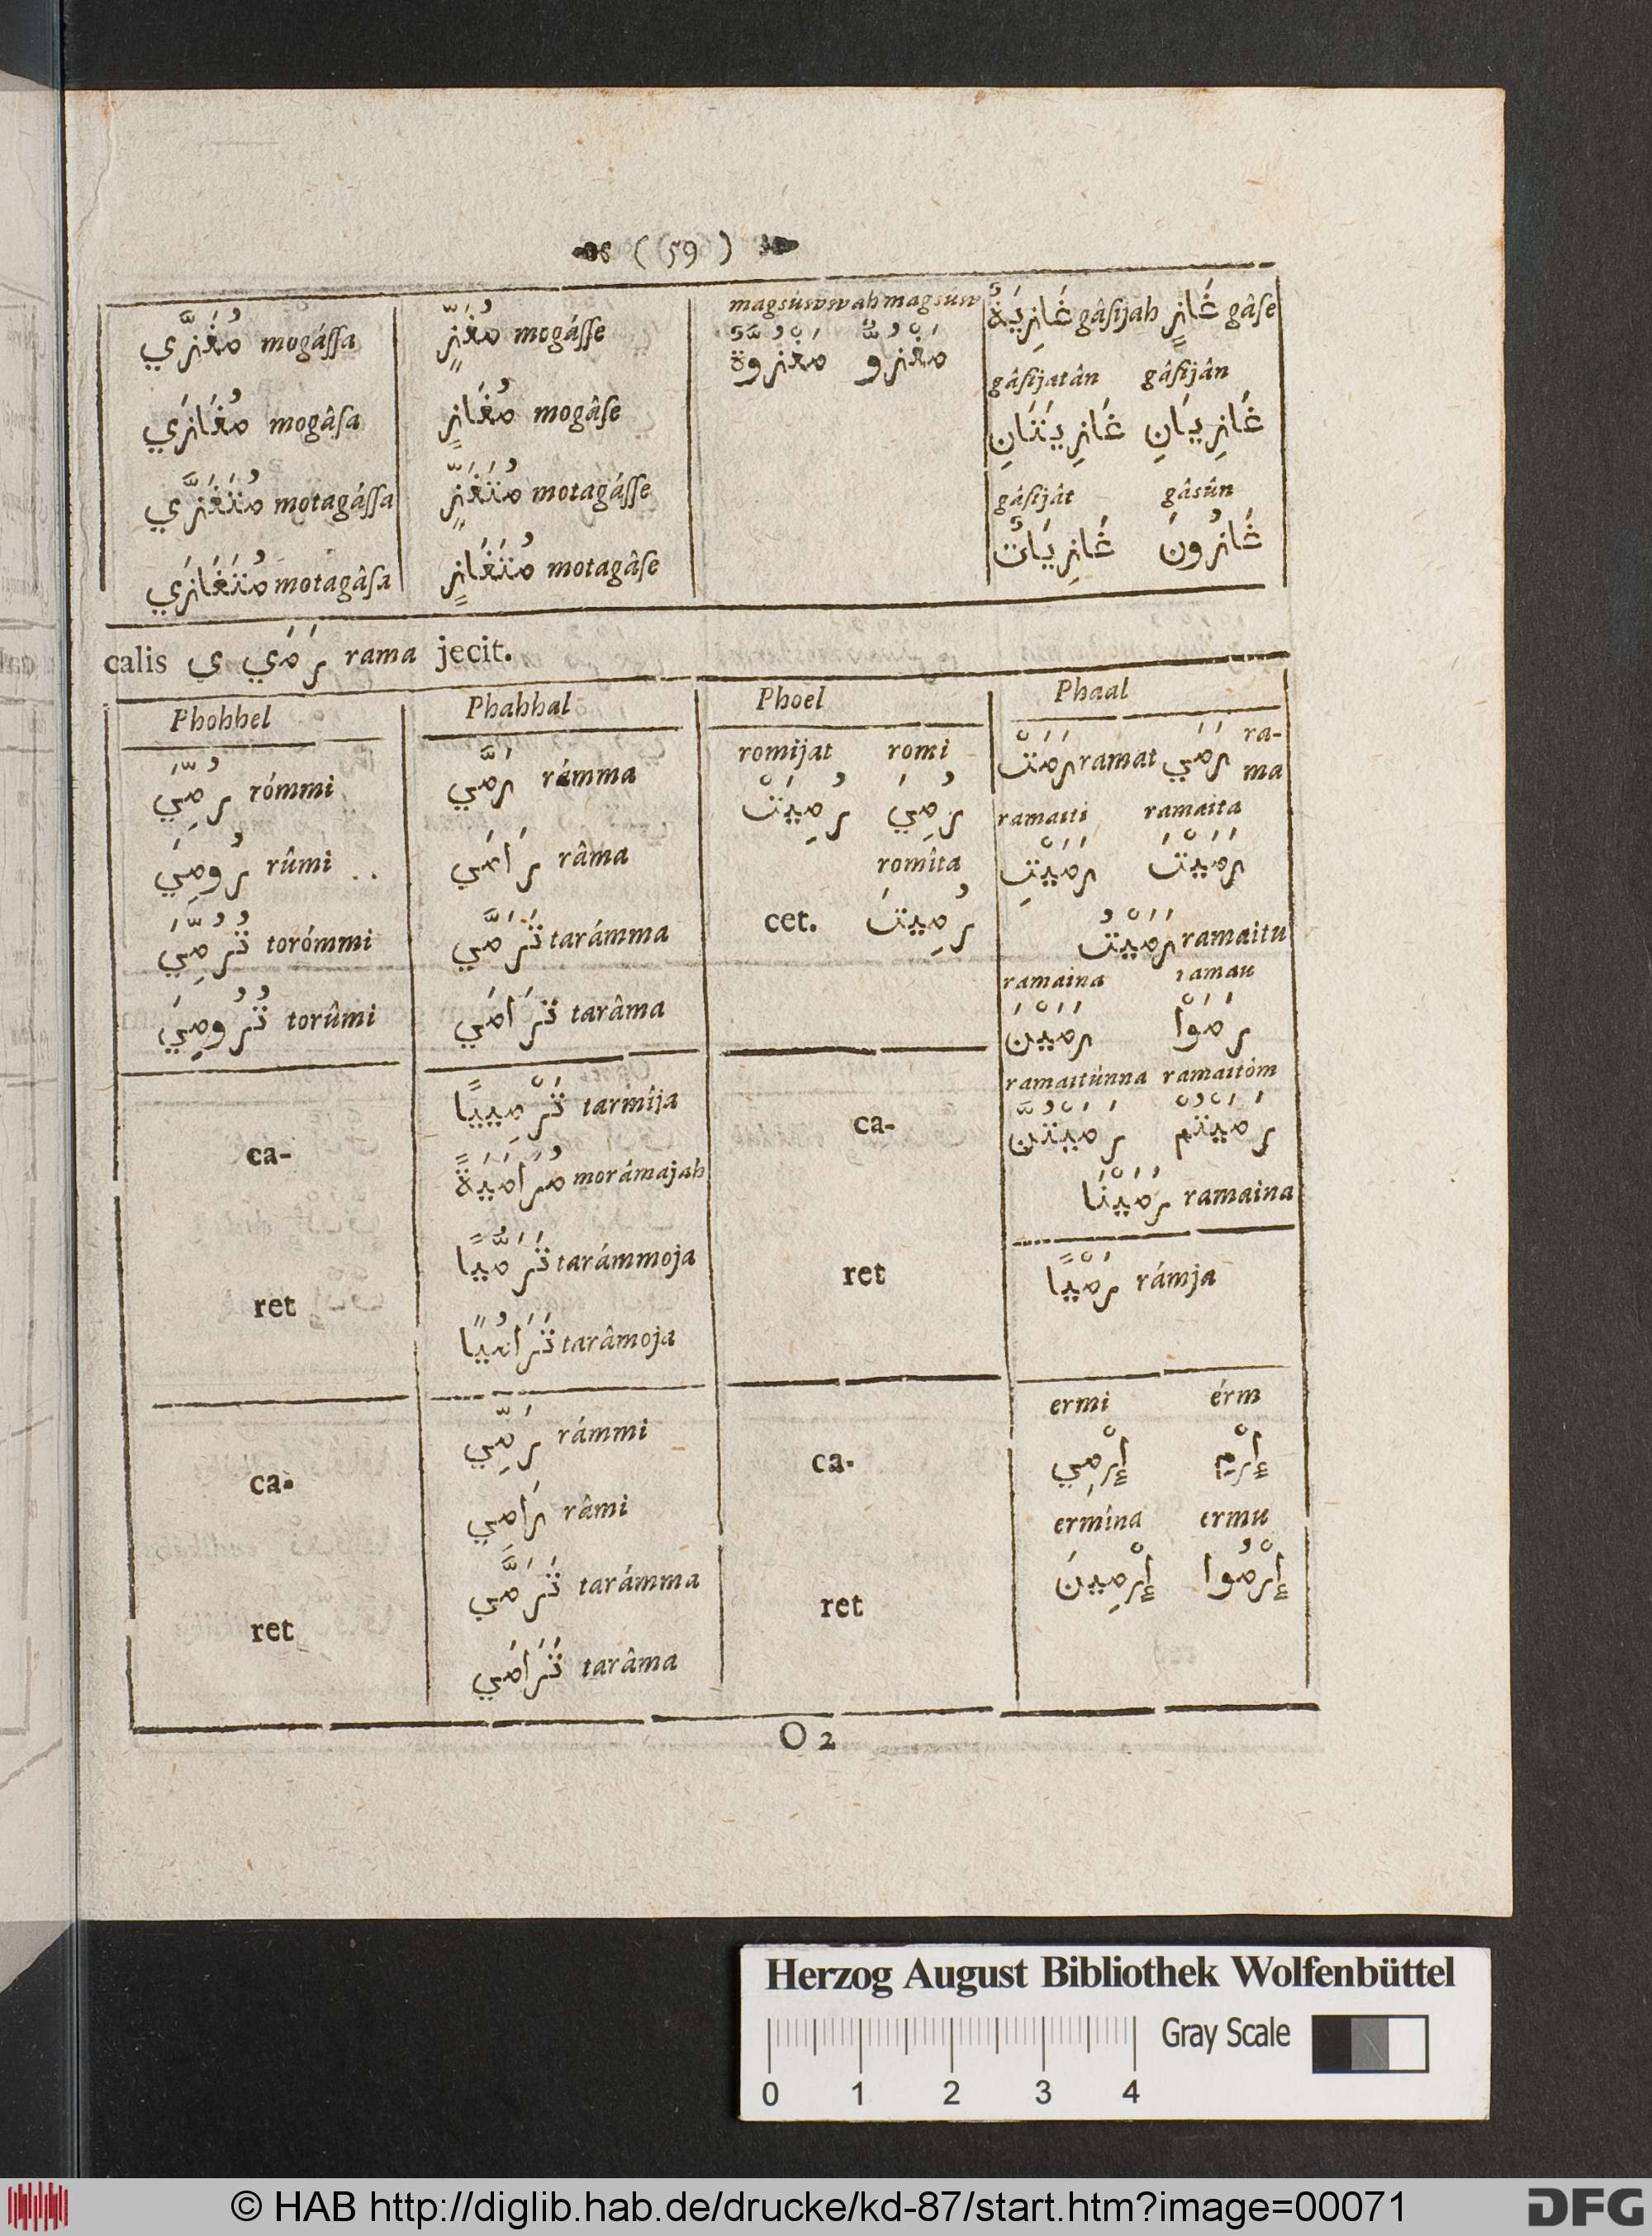 ( 59 )
مُغَزَّي mogássa مُغَزٍّ mogásse magsúwwah magsúw غَازِيَةٌ gâsijah غَازٍ gâse
مَغْزُوَّةٌ مَغْزُوٌّ
gâsijatân gâsijân
مُغَازَي mogâsa مُغَازٍ mogâse غَازِيَتَانِ غَازِيَانِ
مُتَغَزَّي motagássa مُتَغَزٍّ motagásse gâsijât gâsûn
مُتَغَازَي motagâsa مُتَغَازٍ motagâse غَازِيَاتٌ غَازُونَ
calis ي رَمَي rama jecit.
Phohhel Phahhal Phoel Phaal
رُمِّيَ rómmi رَمَّي rámma romijat romi رَمَتْ ramat رَمَي ra-
ma
رُمِيَتْ رُمِيَ ramaiti ramaita
رُومِيَ rûmi رَامَي râma romîta رَمَيْتِ رَمَيْتَ
تُرُمِّيَ torómmi تَرَمَّي tarámma cet. رُمِيتَ رَمَيْتُ ramaitu
ramaina ramau
تُرُومِيَ torûmi تَرَامَي tarâma رَمَيْنَ رَمَوْا
ramaitúnna ramaitóm
ca- تَرْمِييًا tarmîja ca- رَمَيْتُنَّ رَمَيْتُمْ
مُرَامَيَةً morámajah رَمَيْنَا ramaina
ret تَرَمُّيًا tarámmoja ret رَمْيًا rámja
تَرَامُيًا tarâmoja
ermi érm
ca- رَمِّي rámmi ca- إِرْمِي إِرْمِ
رَامِي râmi ermína ermu
ret تَرَمَّي tarámma ret إِرْمِينَ إِرْمُوا
تَرَامَي tarâma
O 2
Herzog August Bibliothek Wolfenbüttel
Gray Scale
0 1 2 3 4
© HAB http://diglib.hab.de/drucke/kd-87/start.htm?image=00071
DFG